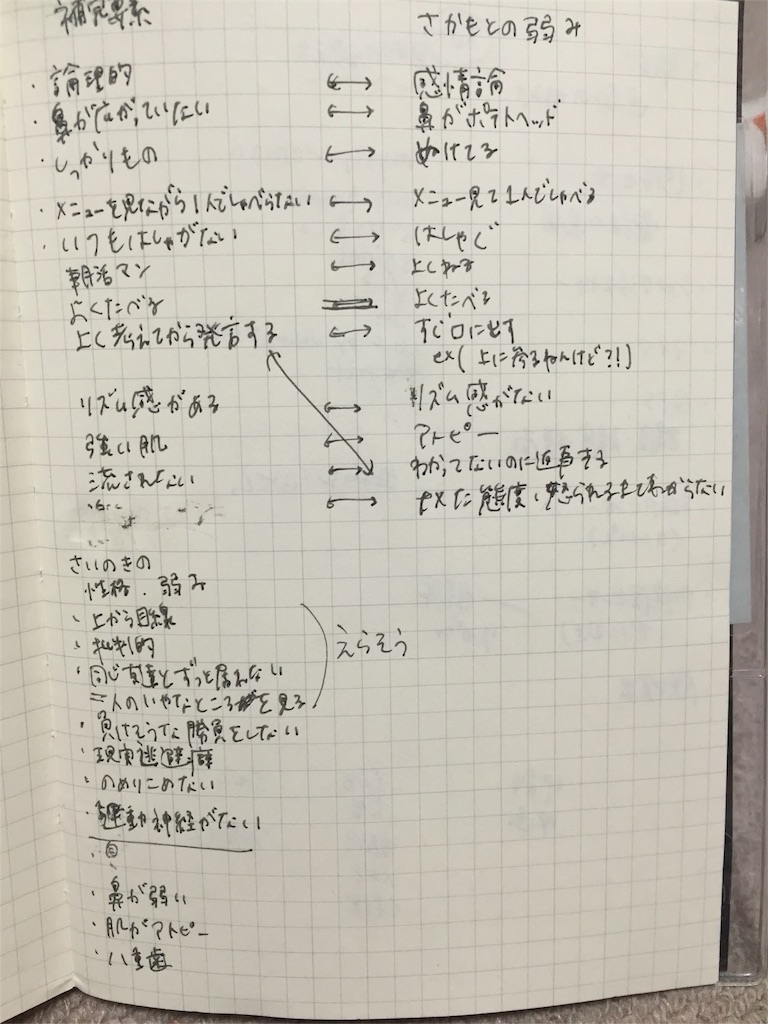 補完要素 さかもとの弱み
・論理的 ↔ 感情論
・鼻が広がっていない ↔ 鼻がポテトヘッド
・しっかりもの ↔ ぬけてる
・メニューを見ながら1人でしゃべらない ↔ メニュー見て1人でしゃべる
・いつもはしゃがない ↔ はしゃぐ
朝活マン ↔ よくねる
よくたべる = よくたべる
よく考えてから発言する ↔ すぐ口に出す
ex(上に
けど?!)
リズム感がある ↔ リズム感がない
強い肌 ↔ アトピー
流されない ↔ わかってないのに返事する
↔ 態度、怒られるまでわからない
さいのきの
性格・弱み
・上から目線
・批判的
えらそう
・同じ友達とずっと居れない
=人のいやなところを見る
・負けそうな勝負をしない
・現実逃避癖
・のめりこめない
・運動神経がない
・目
・鼻が弱い
・肌がアトピー
・八重歯